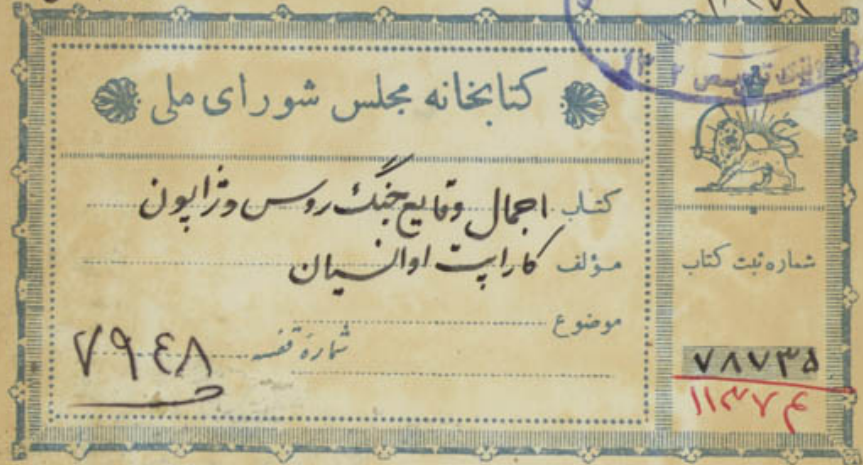 کتابخانه مجلس شورای ملی
کتاب اجمال وقایع جنگ روس و ژاپون
مؤلف کاراپت اوانسیان
موضوع
شماره قفسه ۷۹۴۸
شماره ثبت کتاب
۷۸۷۳۵